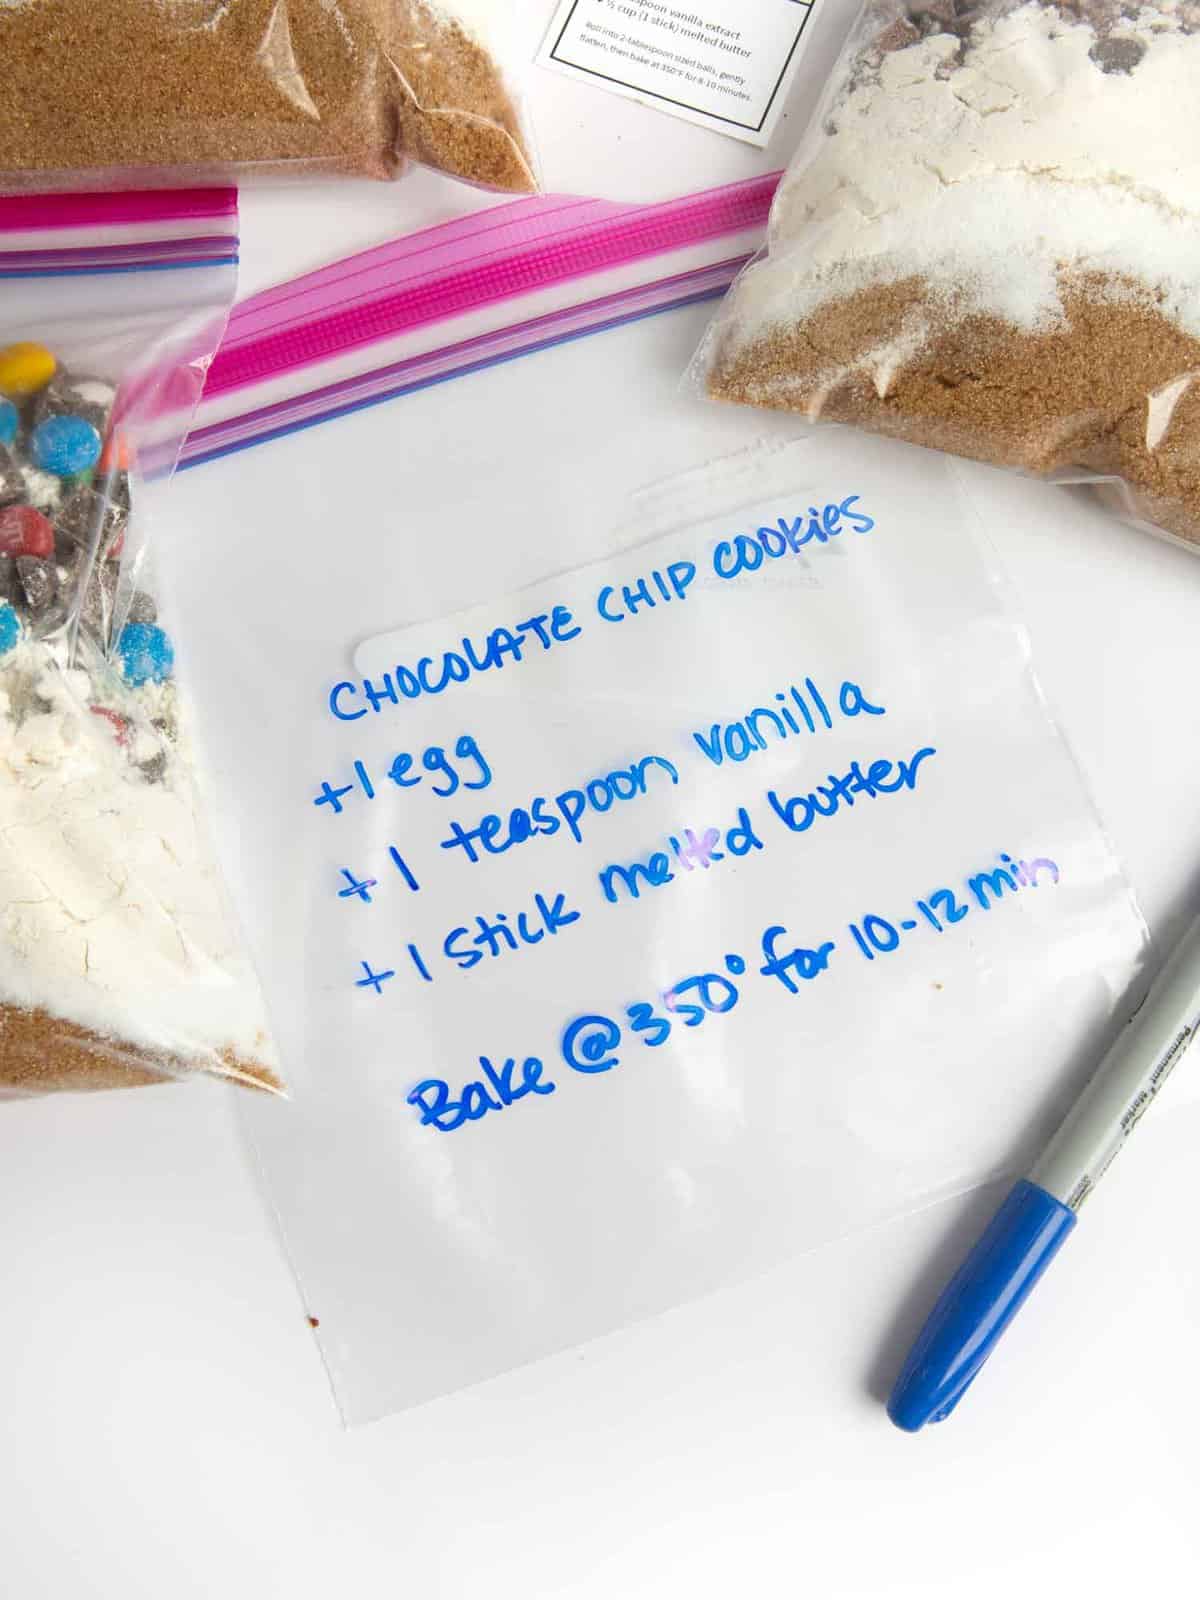 spoon vanilla extract
½ cup (1 stick) melted butter
Roll into 2-tablespoon sized balls, gently
flatten, then bake at 350°F for 8-10 minutes.
CHOCOLATE CHIP COOKIES
+1 egg
+1 teaspoon vanilla
+1 stick melted butter
Bake @ 350° for 10-12 min
Permanent Marker